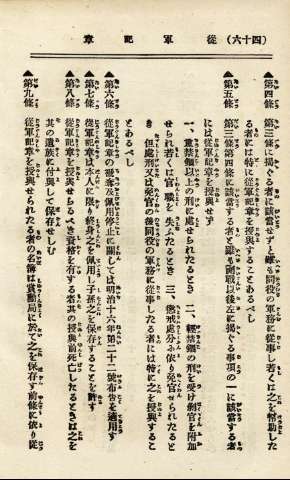 （四十六）　從軍記章
▲第四條　第三條に揭ぐる者に該當せずと雖も同役の軍務に從事し若くは之を幇助した
る者には特に從軍記章を授與することあるべし
▲第五條　第三條第四條に該當する者と雖も開戰以後左に揭ぐる事項の一に該當する者
には從軍記章を授與せず
一、重禁錮以上の刑に處せられたるとき　二、輕禁錮の刑を受け剝官を附加
せられ若くは官、職を失ひたるとき　三、懲戒處分に依り免官せられたると
き　但處刑又は免官の後同役の軍務に從事したる者には特に之を授與するこ
とあるべし
▲第六條　從軍記章の褫奪及佩用停止に關しては明治十六年第二十二號布告を適用す
▲第七條　從軍記章は本人に限り終身之を佩用し子孫之を保存することを許す
▲第八條　從軍記章を授與せらるべき資格を有する者其の授與前死亡したるときは之を
其の遺族に付與して保存せしむ
▲第九條　從軍記章を授與せられたる者の名簿は賞勳局に於て之を保存す前條に依り從